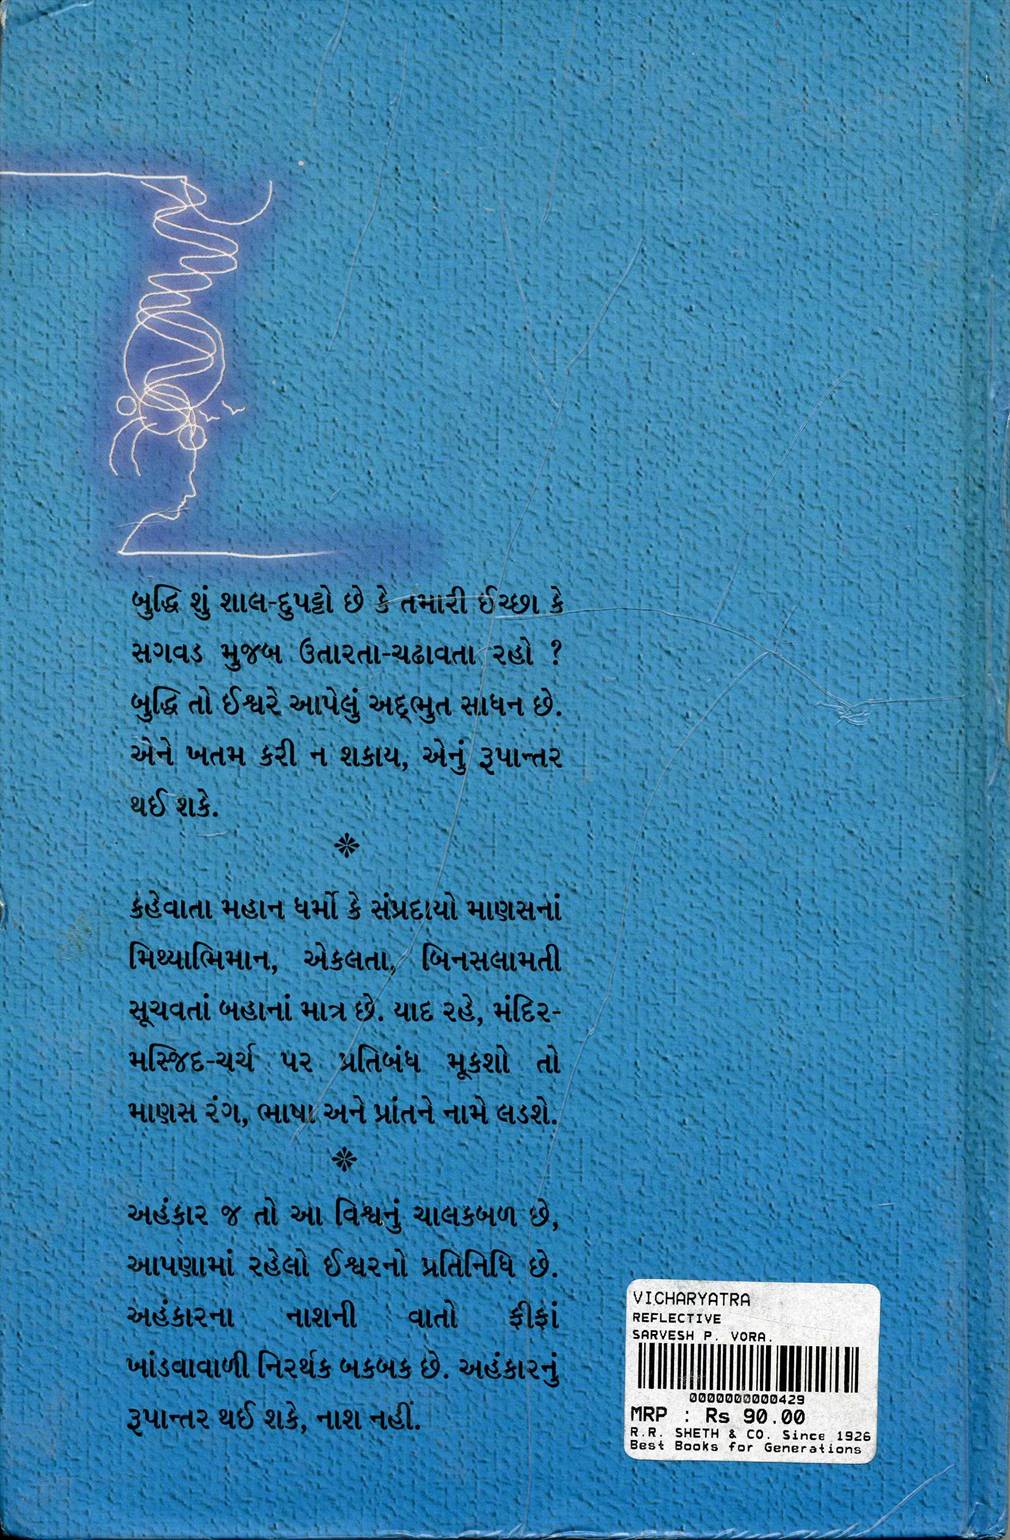 બુદ્ધિ શું શાલ-દુપટ્ટો છે કે તમારી ઈચ્છા કે
સગવડ મુજબ ઉતારતા-ચઢાવતા રહો ?
બુદ્ધિ તો ઈશ્વરે આપેલું અદ્ભુત સાધન છે.
એને ખતમ કરી ન શકાય, એનું રૂપાન્તર
થઈ શકે.
કહેવાતા મહાન ધર્મો કે સંપ્રદાયો માણસનાં
મિથ્યાભિમાન, એકલતા, બિનસલામતી
સૂચવતાં બહાનાં માત્ર છે. યાદ રહે, મંદિર-
મસ્જિદ-ચર્ચ પર પ્રતિબંધ મૂકશો તો
માણસ રંગ, ભાષા અને પ્રાંતને નામે લડશે.
અહંકાર જ તો આ વિશ્વનું ચાલકબળ છે,
આપણામાં રહેલો ઈશ્વરનો પ્રતિનિધિ છે.
અહંકારના નાશની વાતો ફીફાં
ખાંડવાવાળી નિરર્થક બકબક છે. અહંકારનું
રૂપાન્તર થઈ શકે, નાશ નહીં.
VICHARYATRA
REFLECTIVE
SARVESH P. VORA.
0000000000429
MRP : Rs 90.00
R.R. SHETH & CO. Since 1926
Best Books for Generations